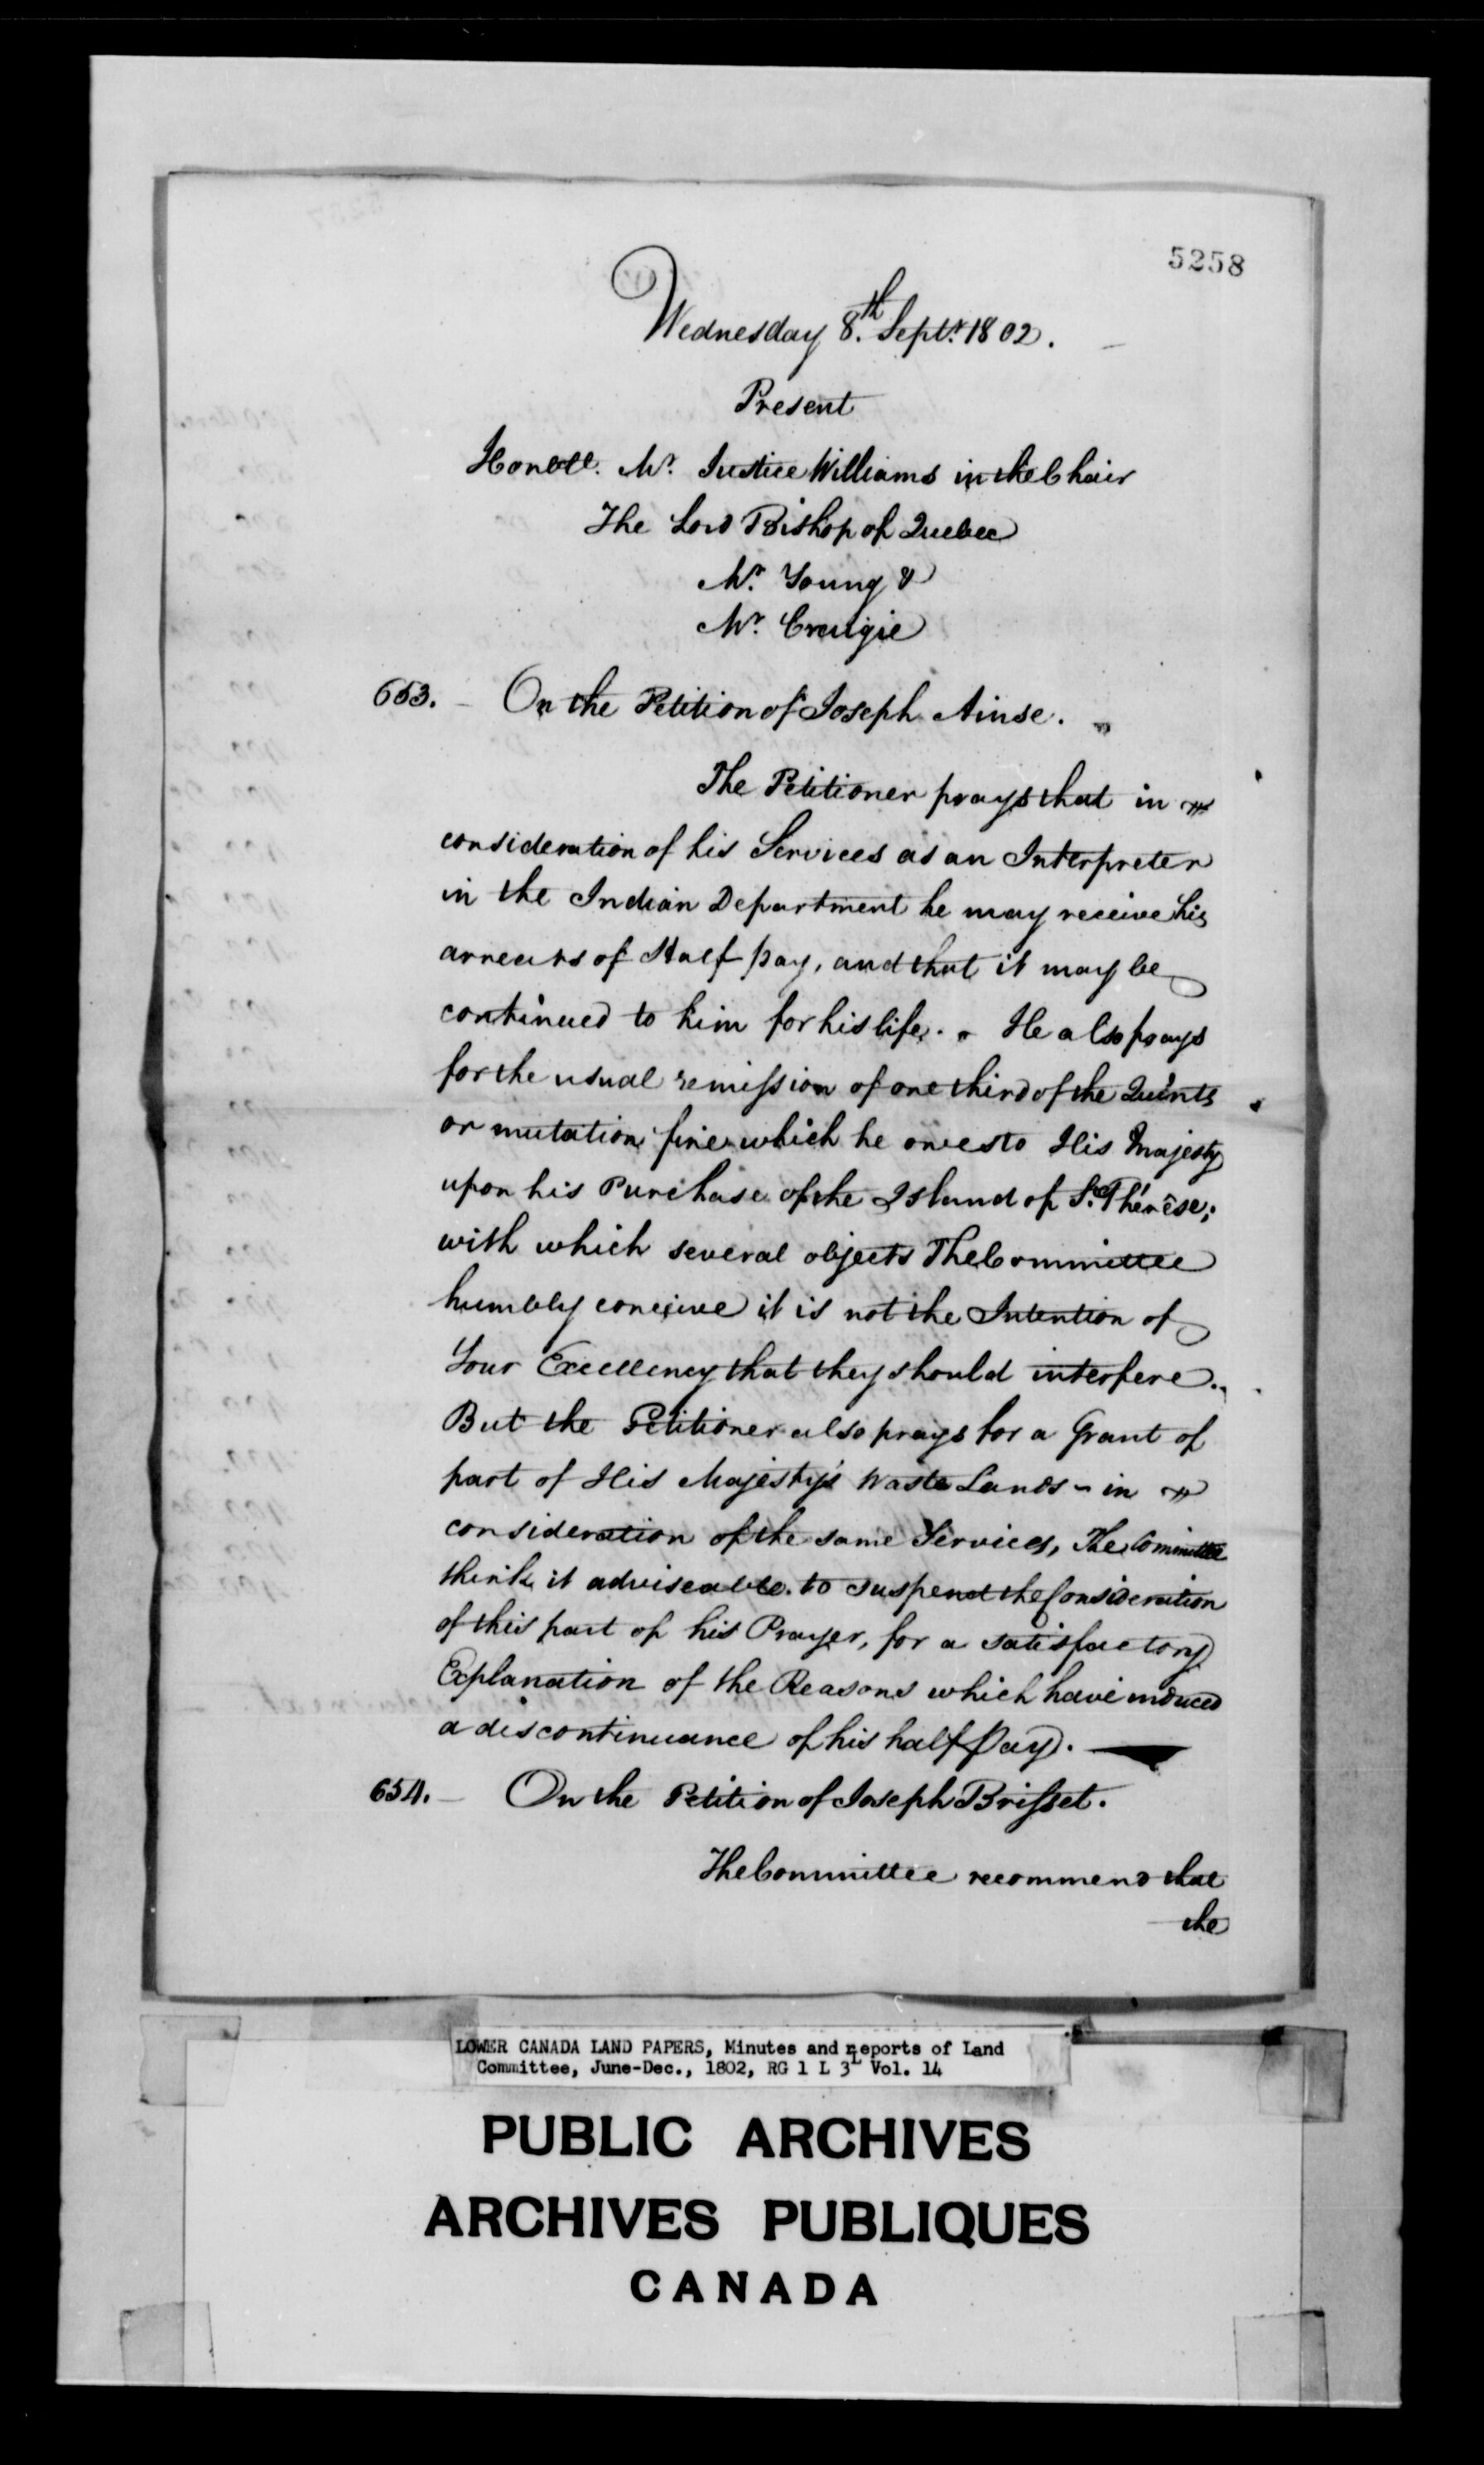 5258
Wednesday 8.th Septr. 1802.
Present
Honble. Mr. Justice Williams in the Chair
The Lord Bishop of Quebec
Mr. Young &
Mr. Craigie
653. On the Petition of Joseph Ainse.
The Petitioner prays that in
consideration of his Services as an Interpreter
in the Indian Department he may receive his
arrears of Half pay, and that it may be
continued to him for his life. - He also prays
for the usual remission of one third of the Quints
or mutation fine which he owes to His Majesty
upon his Purchase of the Island of Ste. Thérèse;
with which several objects The Committee
humbly conceive it is not the Intention of
Your Excellency that they should interfere.
But the Petitioner also prays for a Grant of
part of His Majesty's Waste Lands - in
consideration of the same Services, The Committee
think it adviseable to suspend the Consideration
of this part of his Prayer, for a satisfactory
Explanation of the Reasons which have induced
a discontinuance of his half Pay.
654. On the Petition of Joseph Brisset.
The Committee recommend that
the
LOWER CANADA LAND PAPERS, Minutes and reports of Land
Committee, June-Dec., 1802, RG 1 L 3L Vol. 14
PUBLIC ARCHIVES
ARCHIVES PUBLIQUES
CANADA